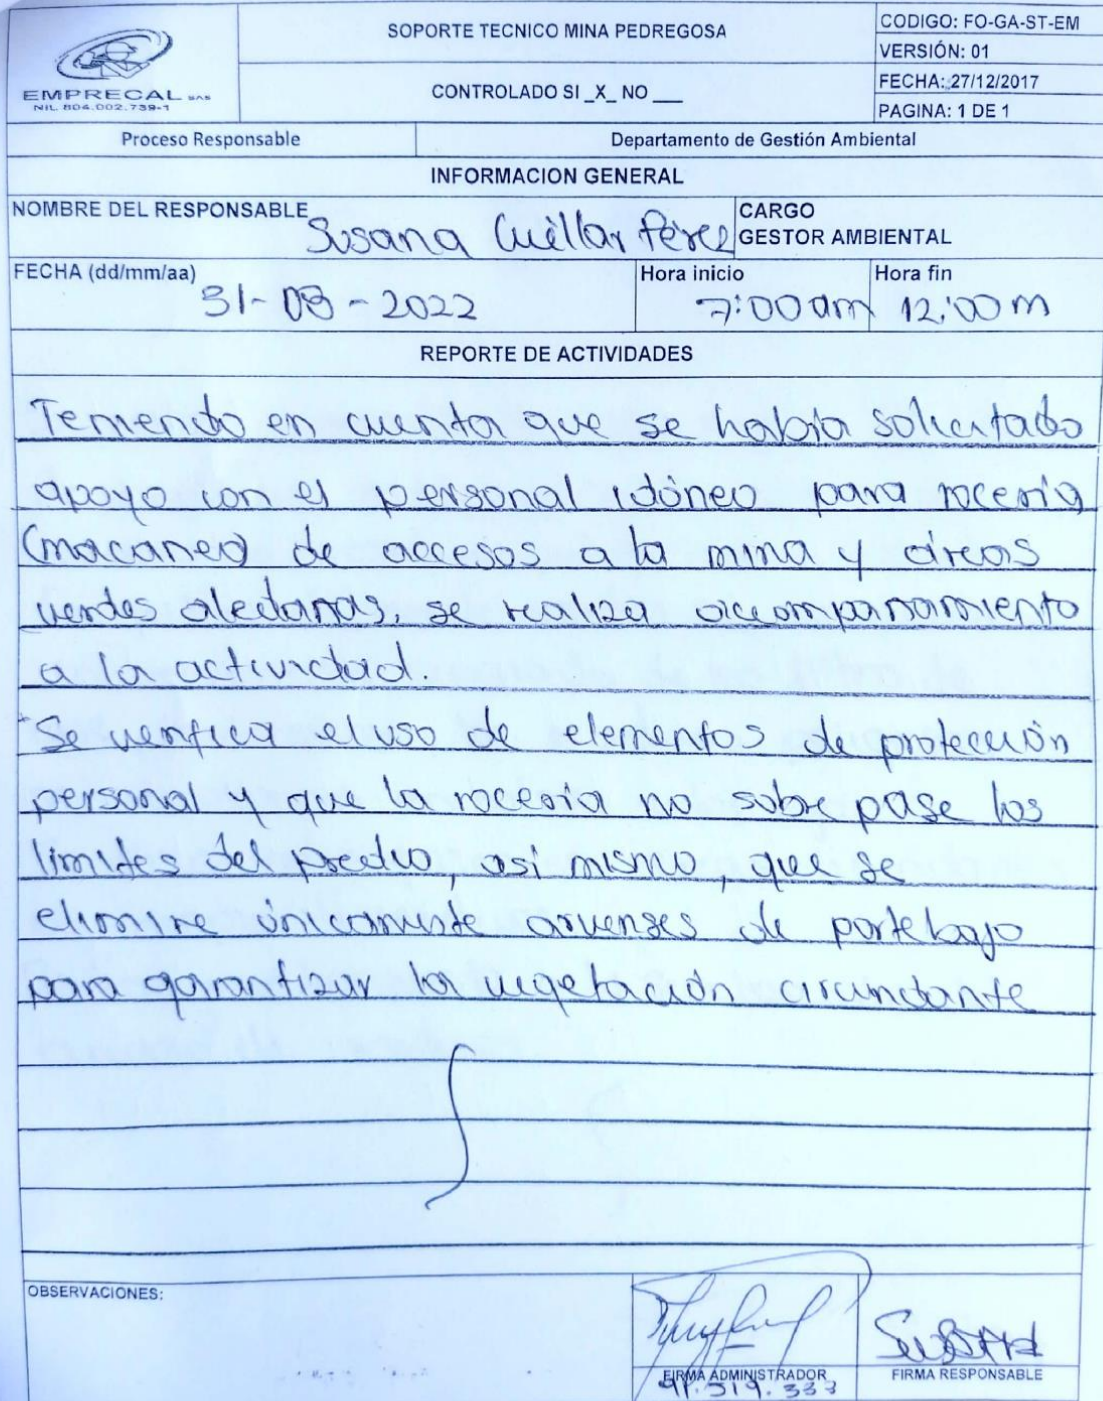 EMPRECAL SAS
NIL. 804.002.739-1
SOPORTE TECNICO MINA PEDREGOSA
CONTROLADO SI _X_ NO ___
CODIGO: FO-GA-ST-EM
VERSIÓN: 01
FECHA: 27/12/2017
PAGINA: 1 DE 1
Proceso Responsable
Departamento de Gestión Ambiental
INFORMACION GENERAL
NOMBRE DEL RESPONSABLE
Susana Cuéllar Pérez
CARGO
GESTOR AMBIENTAL
FECHA (dd/mm/aa)
31-08-2022
Hora inicio
7:00 am
Hora fin
12:00 m
REPORTE DE ACTIVIDADES
Teniendo en cuenta que se había solicitado
apoyo con el personal idóneo para rocería
(macaneo) de accesos a la mina y áreas
verdes aledañas, se realiza acompañamiento
a la actividad.
Se verifica el uso de elementos de protección
personal y que la rocería no sobre pase los
limites del predio, asi mismo, que se
elimine únicamente arvenses de porte bajo
para garantizar la vegetación circundante
OBSERVACIONES:
FIRMA ADMINISTRADOR
91.519.333
FIRMA RESPONSABLE